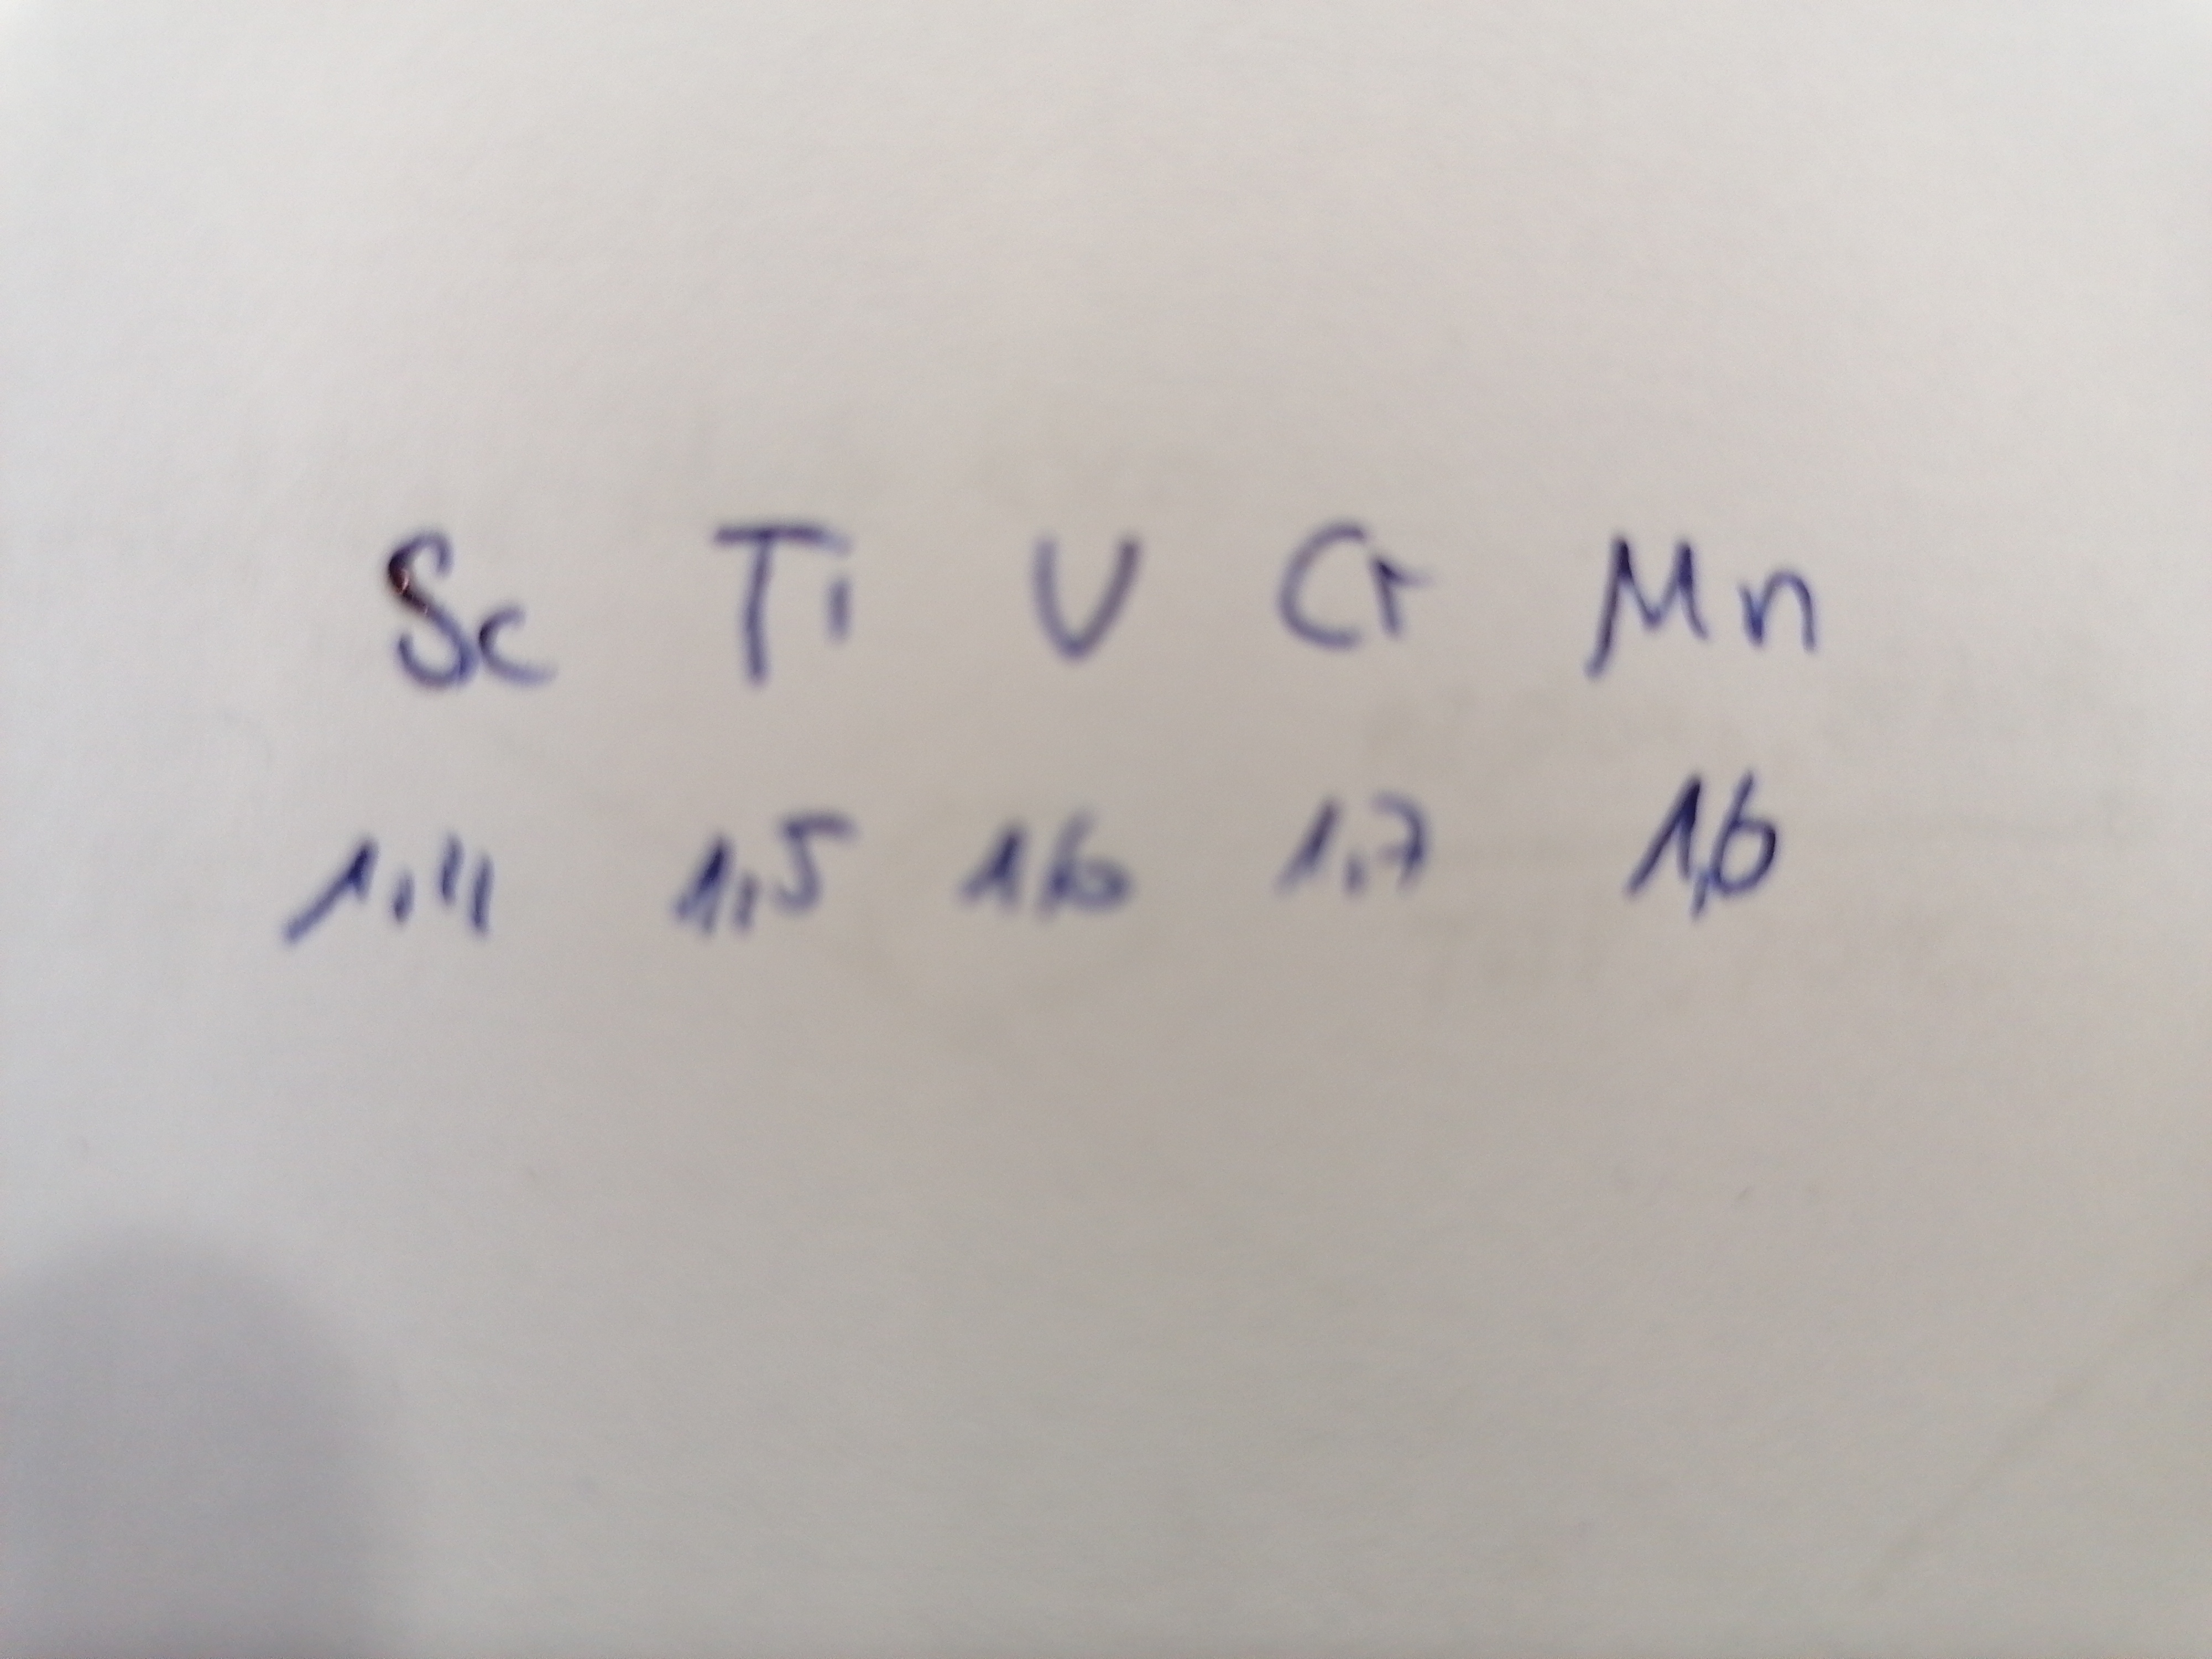 Sc Ti V Cr Mn
1,4 1,5 1,6 1,7 1,6